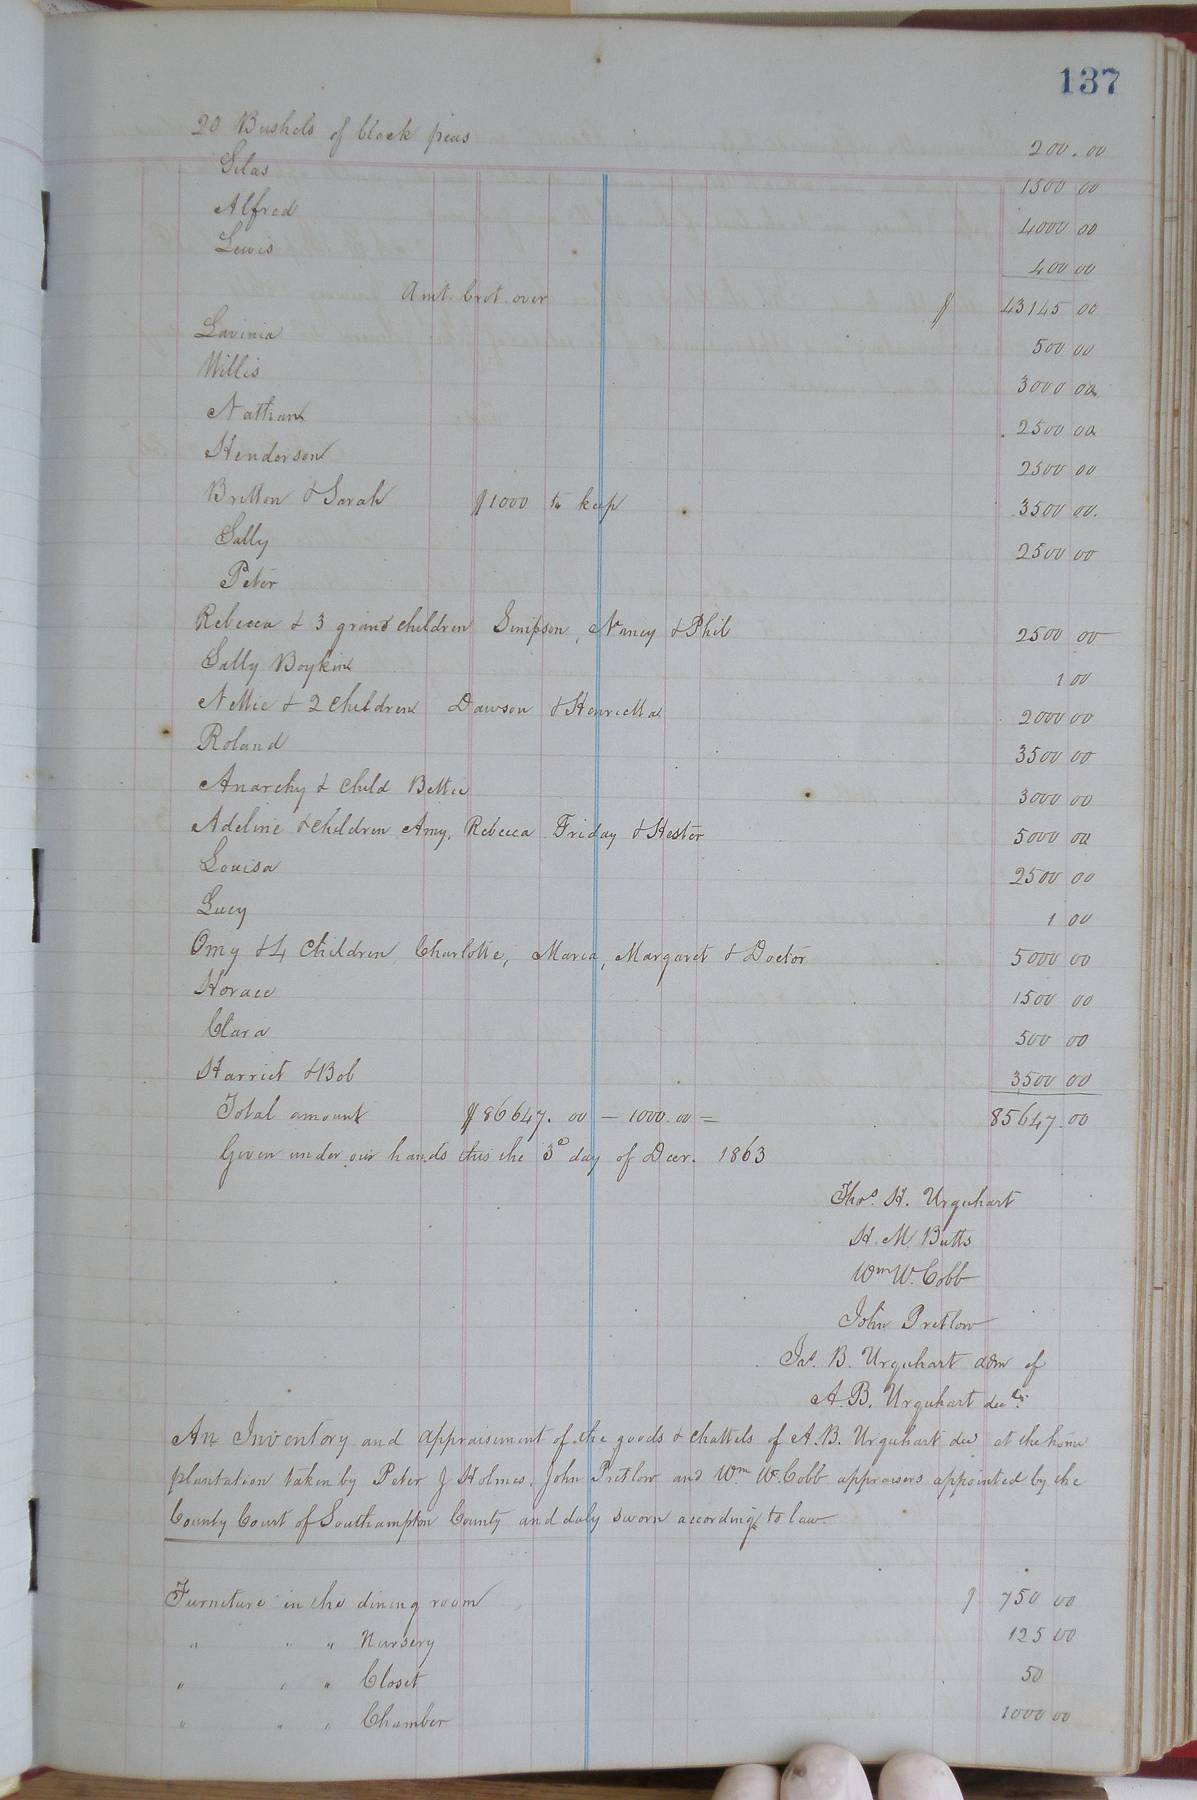 137
20 Bushels of black peas 200.00
Silas 1500 00
Alfred 4000 00
Lewis 400 00
Amt. brot. over $ 43145 00
Lavinia 500 00
Willis 3000 00
Nathan 2500 00
Henderson 2500 00
Britton & Sarah $1000 to keep 3500 00
Sally 2500 00
Peter
Rebecca & 3 grand children Simpson, Nancy & Phil 2500 00
Sally Boykin 1 00
Nettie & 2 Children Dawson & Henrietta 2000 00
Roland 3500 00
Anarchy & Child Bettie 3000 00
Adeline & children Amy, Rebecca Friday & Hester 5000 00
Louisa 2500 00
Lucy 1 00
Omy & 4 Children, Charlotte, Maria, Margaret & Doctor 5000 00
Horace 1500 00
Clara 500 00
Harriet & Bob 3500 00
Total amount $86647.00 — 1000.00 = 85647.00
Given under our hands this the 3d day of Decr. 1863
Thos. H. Urquhart
H. M. Butts
Wm W. Cobb
John Pretlow
Jas. B. Urquhart adm of
A. B. Urquhart decd.
An Inventory and appraisement of the goods & chattels of A. B. Urquhart dec at the home
plantation taken by Peter J Holmes, John Pretlow and Wm W. Cobb appraisers appointed by the
County Court of Southampton County and duly sworn according to law
Furneture in the dining room $ 750 00
" " " Nursery 125 00
" " " Closet 50
" " " Chamber 1000 00